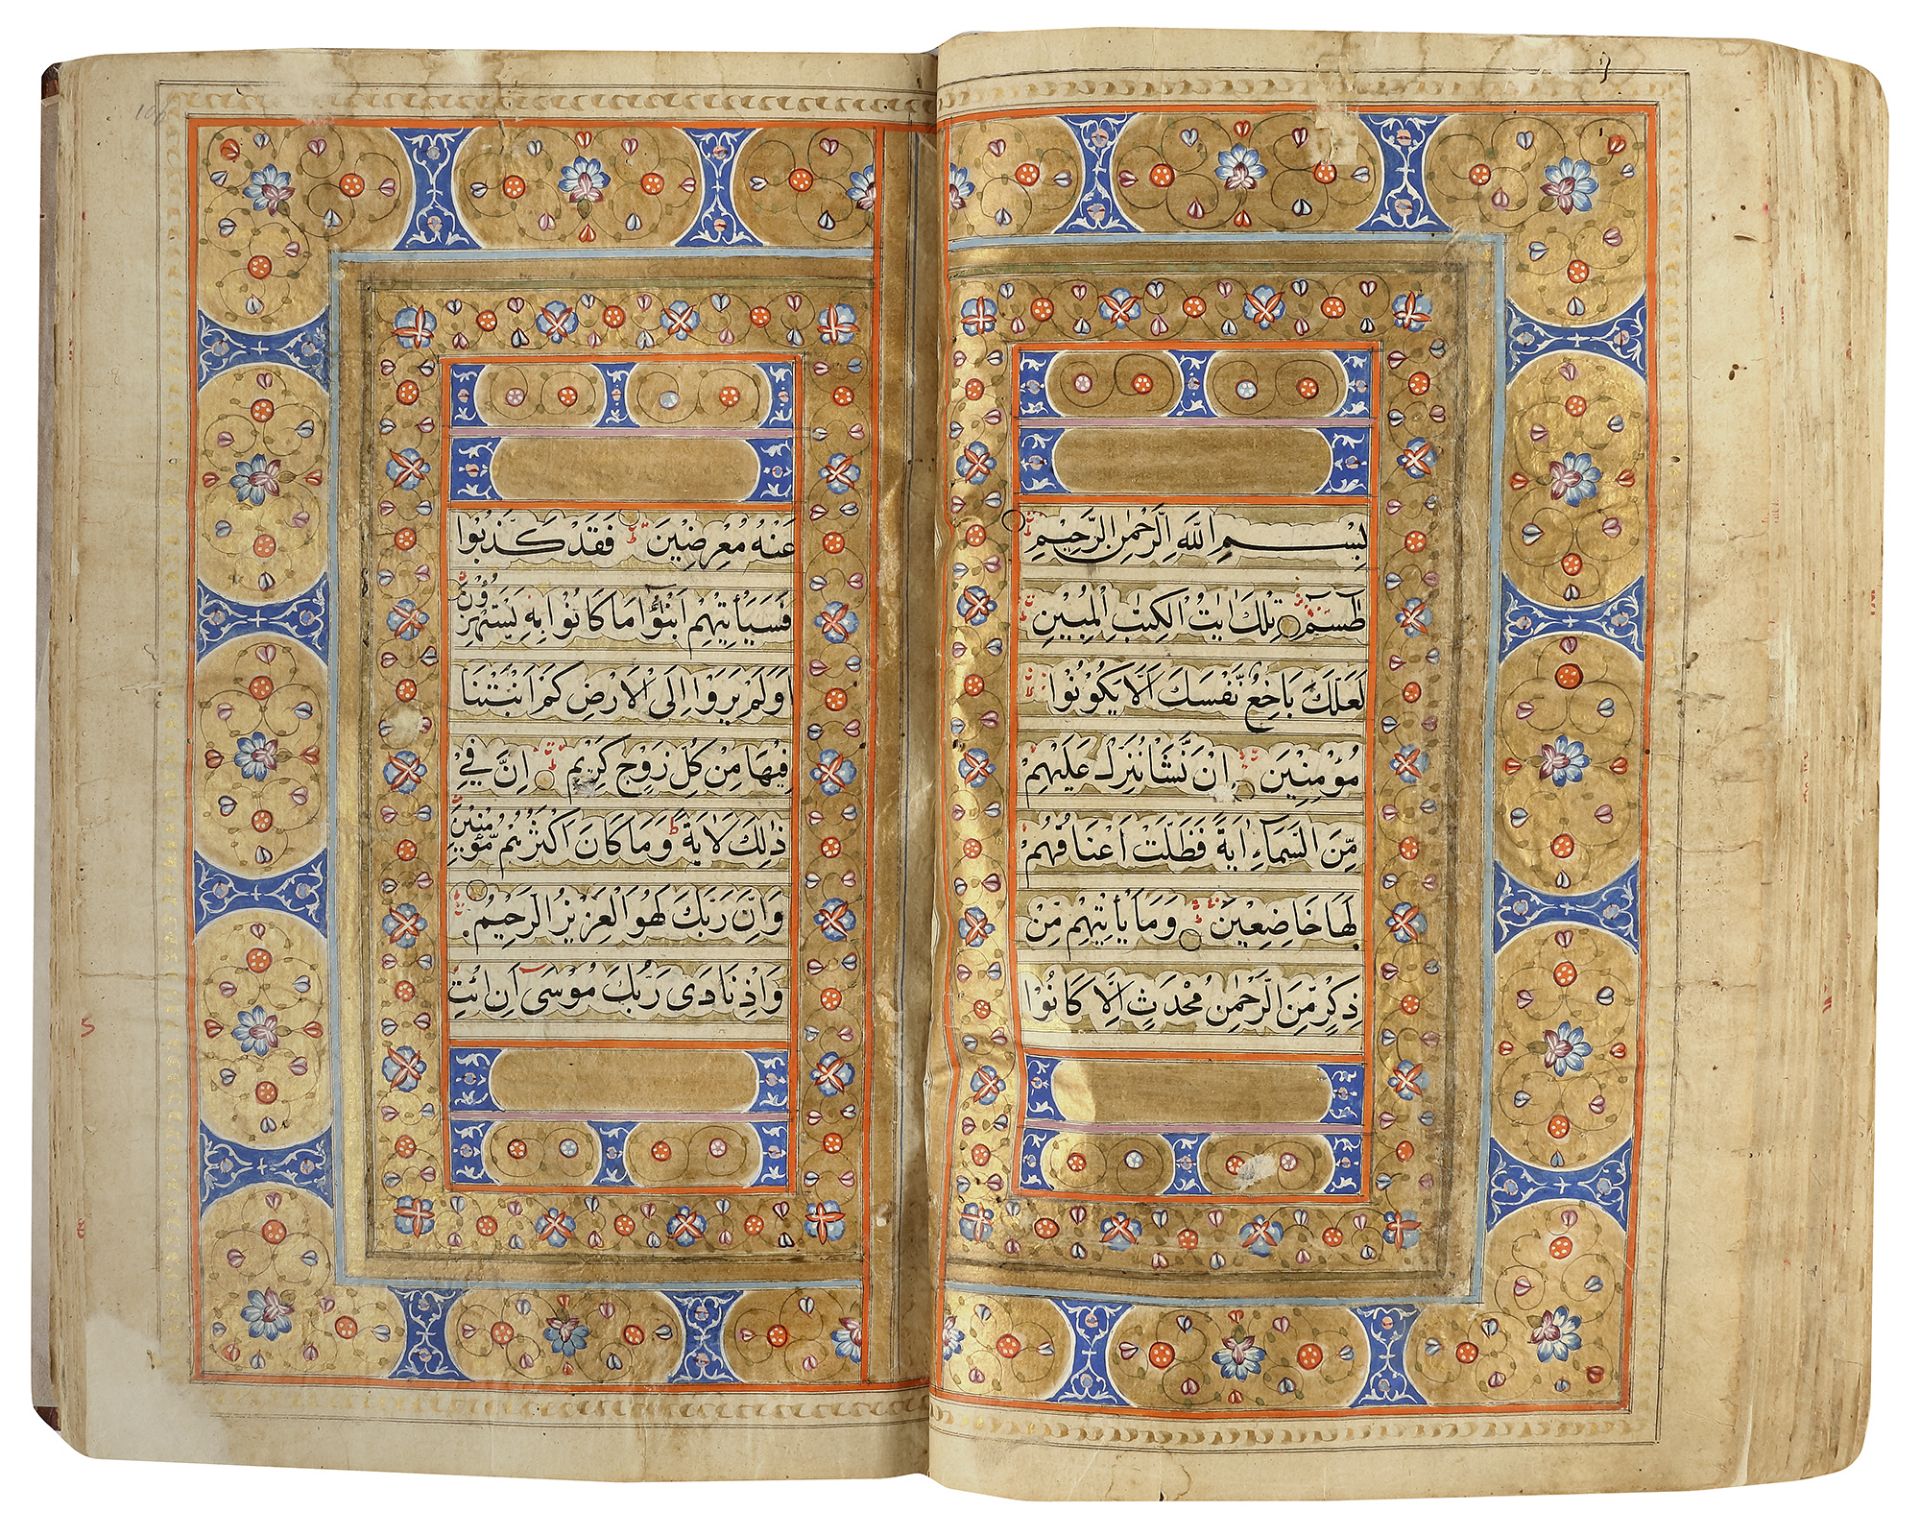 بِسْمِ اللّٰهِ الرَّحْمٰنِ الرَّحِيْمِ
طٰسٓمٓ تِلْكَ اٰيٰتُ الْكِتٰبِ الْمُبِيْنِ
لَعَلَّكَ بَاخِعٌ نَّفْسَكَ اَلَّا يَكُوْنُوْا
مُؤْمِنِيْنَ اِنْ نَّشَاْ نُنَزِّلْ عَلَيْهِمْ
مِّنَ السَّمَآءِ اٰيَةً فَظَلَّتْ اَعْنَاقُهُمْ
لَهَا خَاضِعِيْنَ وَمَا يَأْتِيْهِمْ مِّنْ
ذِكْرٍ مِّنَ الرَّحْمٰنِ مُحْدَثٍ اِلَّا كَانُوْا
عَنْهُ مُعْرِضِيْنَ فَقَدْ كَذَّبُوْا
فَسَيَأْتِيْهِمْ اَنْبٰٓؤُا مَا كَانُوْا بِهٖ يَسْتَهْزِءُوْنَ
اَوَلَمْ يَرَوْا اِلَى الْاَرْضِ كَمْ اَنْبَتْنَا
فِيْهَا مِنْ كُلِّ زَوْجٍ كَرِيْمٍ اِنَّ فِيْ
ذٰلِكَ لَاٰيَةً وَمَا كَانَ اَكْثَرُهُمْ مُّؤْمِنِيْنَ
وَاِنَّ رَبَّكَ لَهُوَ الْعَزِيْزُ الرَّحِيْمُ
وَاِذْ نَادٰى رَبُّكَ مُوْسٰٓى اَنِ ائْتِ